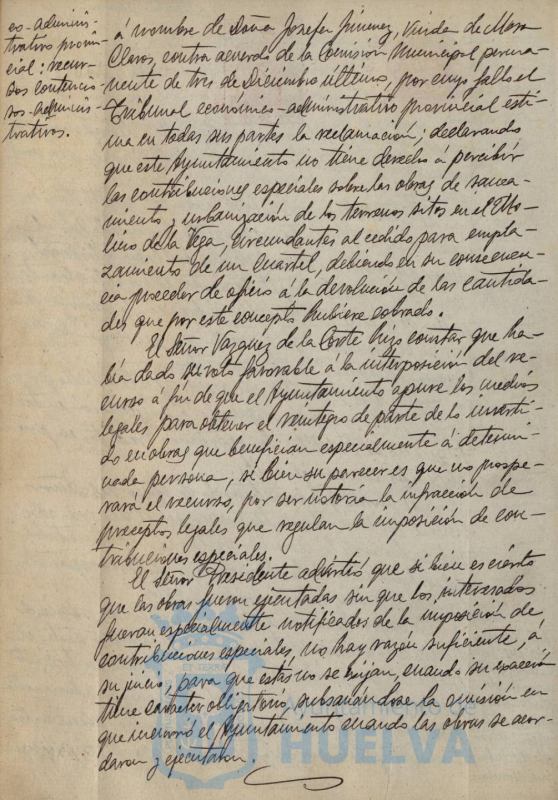 co-adminis-
trativo provin-
cial: recur-
sos contencio-
sos-adminis-
trativos.
á nombre de Doña Josefa Jimenez, Viuda de Mora
Claros, contra acuerdo de la Comisión Municipal perma-
nente de tres de Diciembre último, por cuyo fallo el
Tribunal económico-administrativo provincial esti-
ma en todas sus partes la reclamación; declarando
que este Ayuntamiento no tiene derecho á percibir
las contribuciones especiales sobre las obras de sanea-
miento y urbanización de los terrenos sitos en el Mo-
lino de la Vega, circundantes al cedido para empla-
zamiento de un Cuartel, debiendo en su consecuen-
cia proceder de oficio á la devolución de las cantida-
des que por este concepto hubiere cobrado.
El Señor Vázquez de la Corte hizo constar que ha-
bía dado su voto favorable á la interposición del re-
curso á fin de que el Ayuntamiento apure los medios
legales para obtener el reintegro de parte de lo inverti-
do en obras que benefician especialmente á determi-
nada persona, si bien su parecer es que no prospe-
rará el recurso, por ser notoria la infracción de
preceptos legales que regulan la imposición de con-
tribuciones especiales.
El Señor Presidente advirtió que si bien es cierto
que las obras fueron ejecutadas sin que los interesados
fueran especialmente notificados de la imposición de
contribuciones especiales, no hay razón suficiente, á
su juicio, para que estas no se exijan, cuando su exacción
tiene caracter obligatorio, subsanándose la omisión en
que incurrió el Ayuntamiento cuando las obras se acor-
daron y ejecutaron.
HUELVA